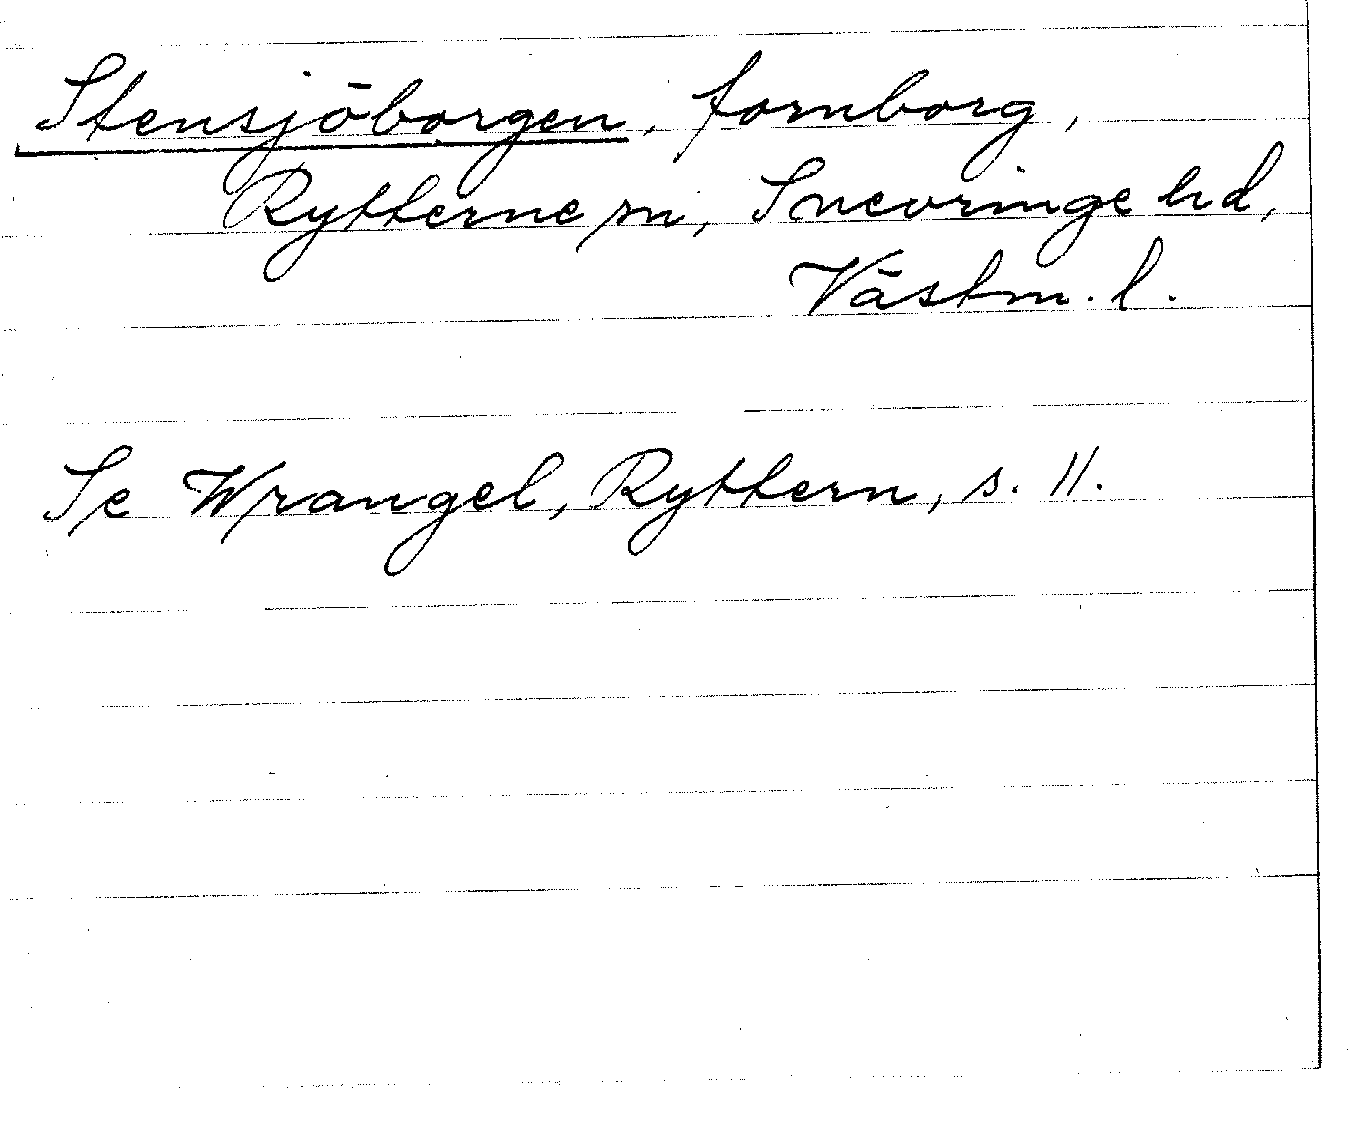 Stensjöborgen, fornborg,
Rytterne sn, Snevringe hd,
Västm. l.
Se Wrangel, Ryttern, s. 11.